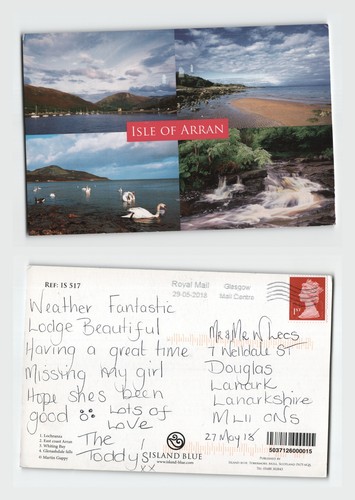 ISLE OF ARRAN
REF: IS 517
Royal Mail
28-05-2018
Glasgow
Mail Centre
1st
Weather Fantastic
Lodge Beautiful
Having a great time
Missing my girl
Hope shes been
good Lots of
Love
The
Toddys!
xx
Mr & Mr N Lees
7 Welldale ST
Douglas
Lanark
Lanarkshire
ML11 0NS
27 May 18
1. Lochranza
2. East coast Arran
3. Whiting Bay
4. Glenashdale falls
© Martin Guppy
ISLAND BLUE
www.island-blue.com
5037126000015
PUBLISHED BY